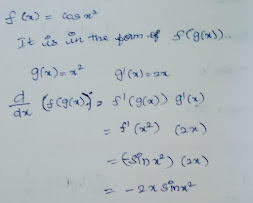 f(x) = cos x²
It is in the form of f(g(x)).
g(x) = x² g'(x) = 2x
d/dx (f(g(x))) = f'(g(x)) g'(x)
= f'(x²) (2x)
= (-sin x²) (2x)
= -2x sin x²